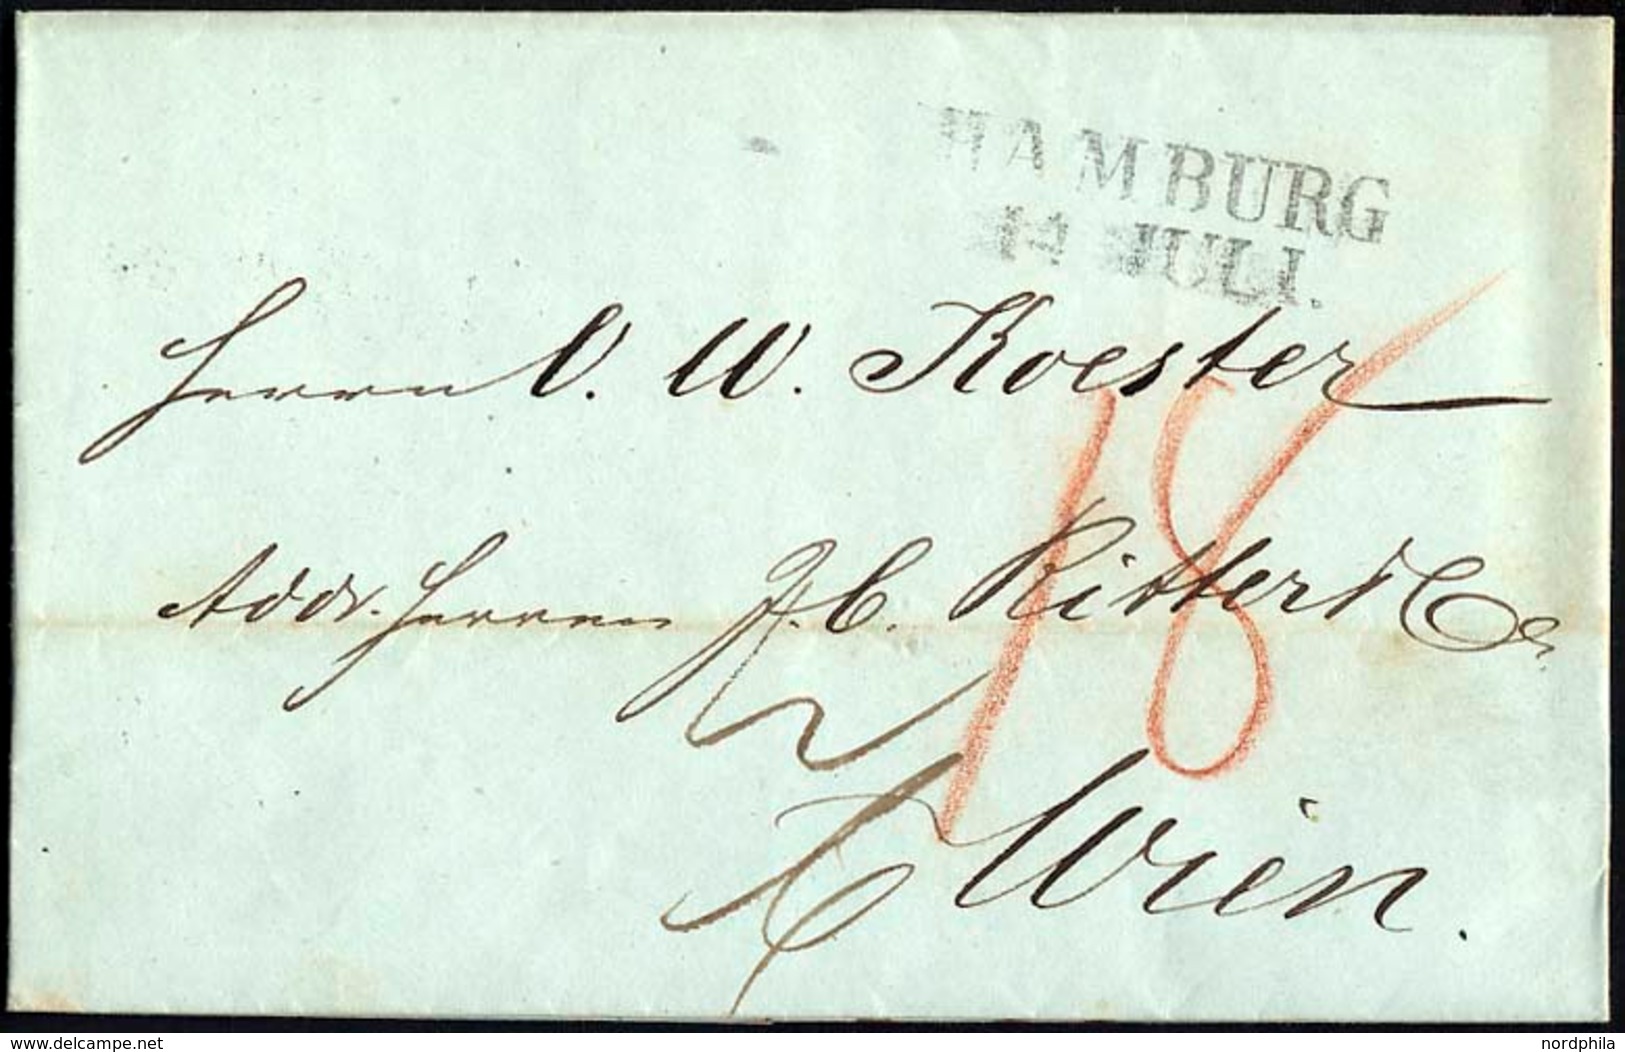 HAMBURG
14 JULI.
Herrn O. W. Koester
18
Addr. Herren J. C. Ritter & Co.
Wien.
www.delcampe.net
nordphila